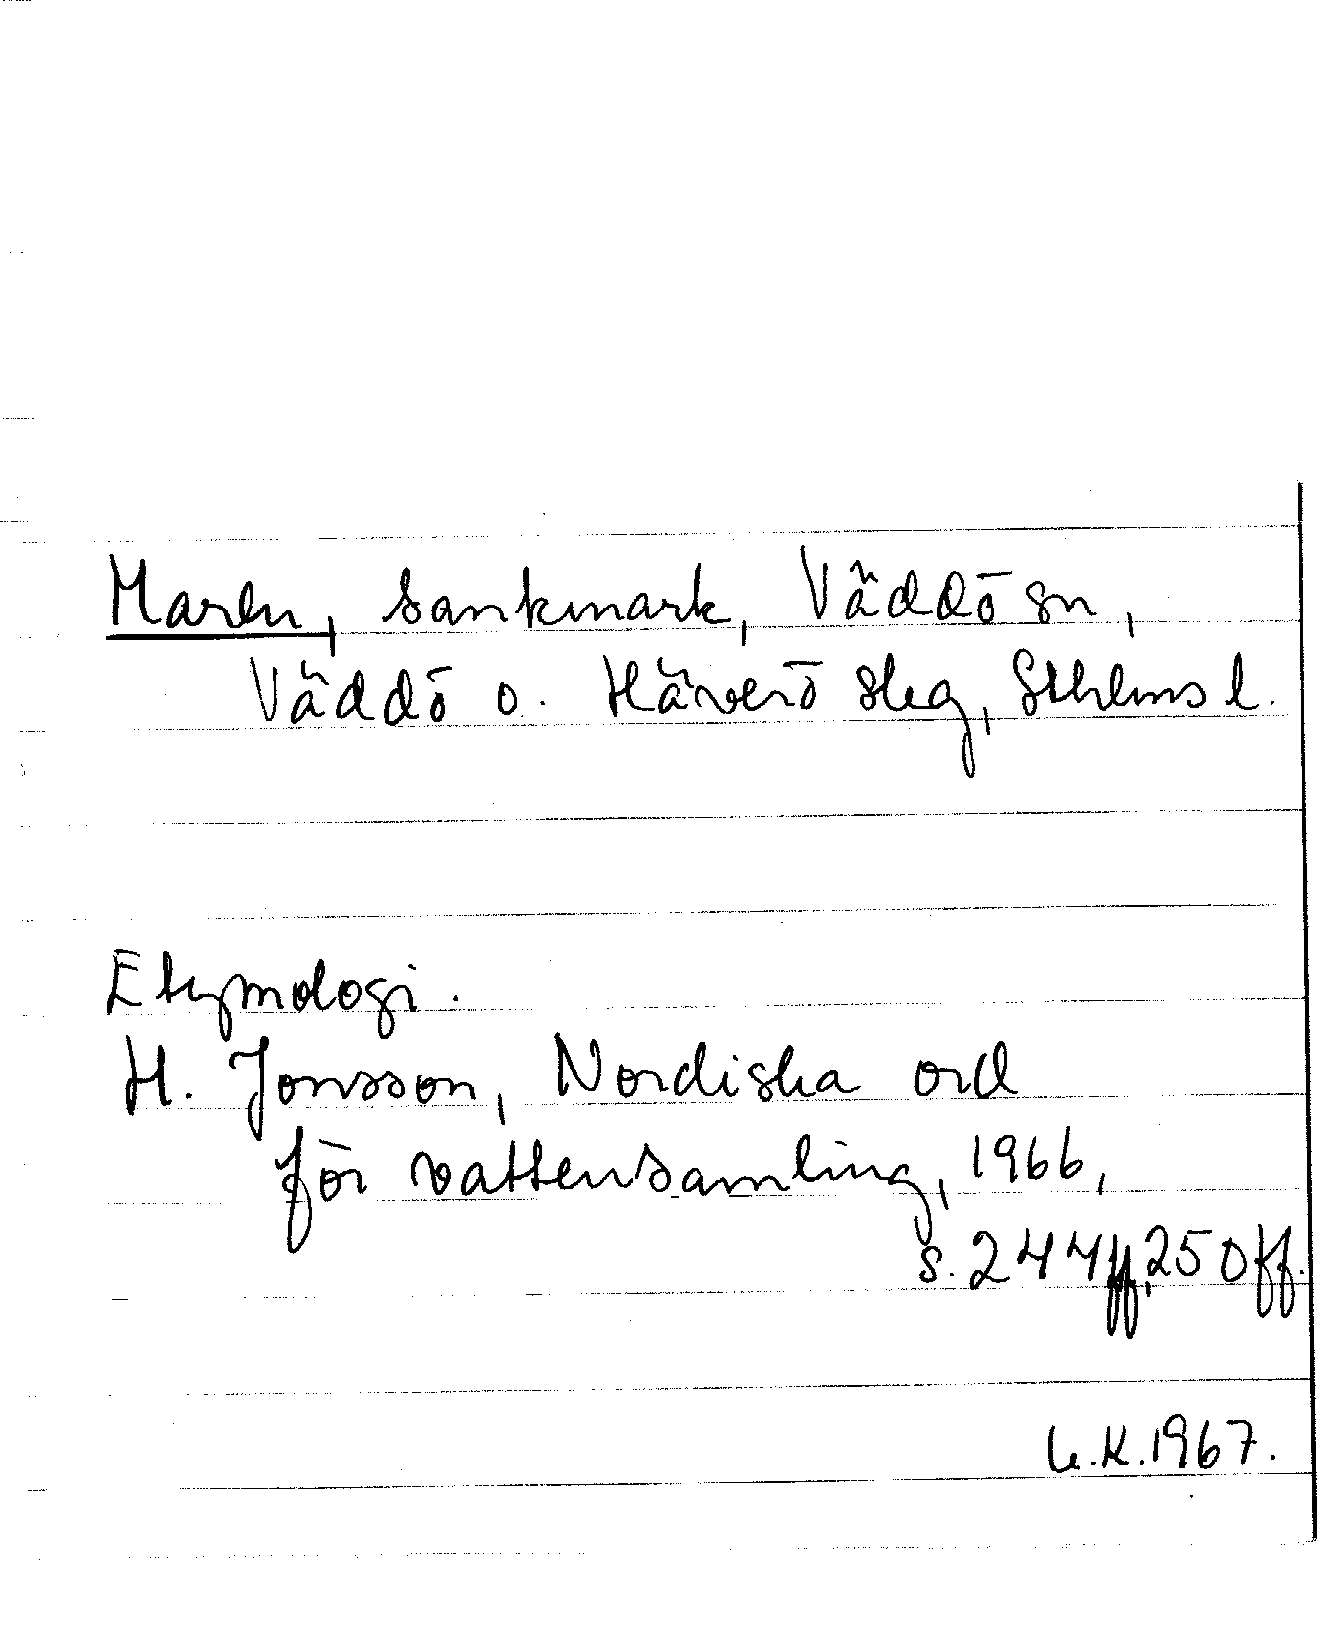 Maren, sankmark, Väddö sn,
Väddö o. Häverö skg, Sthlms l.
Etymologi.
H. Jonsson, Nordiska ord
för vattensamling, 1966,
s. 244ff, 250ff.
G.K. 1967.